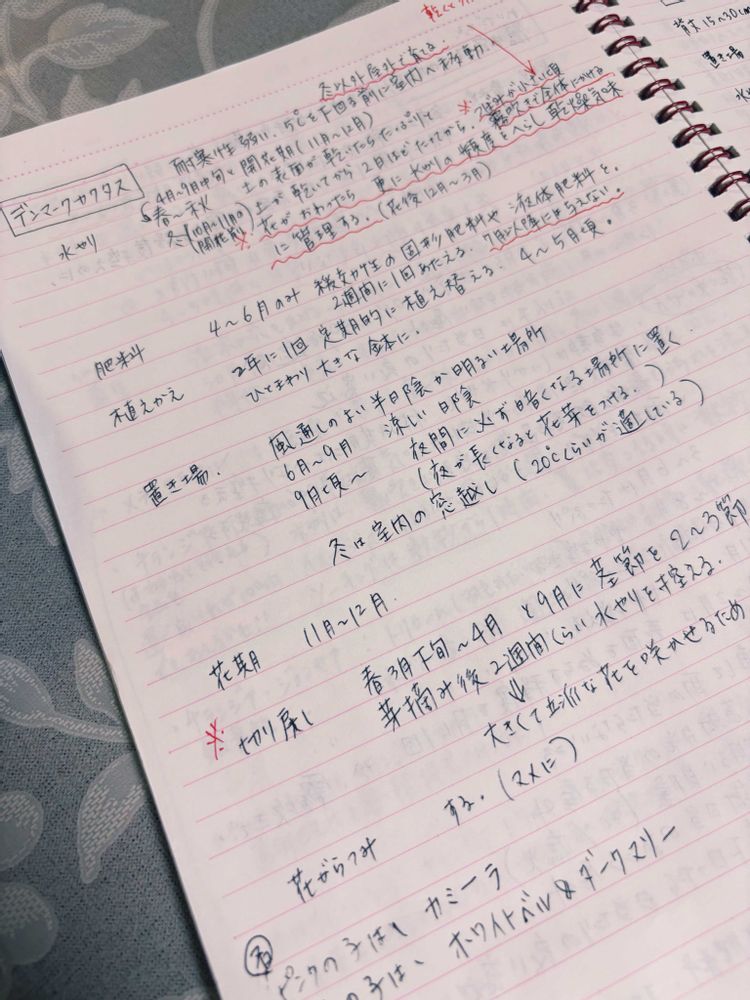 乾くと
冬以外屋外で育てる。
耐寒性弱い。5℃を下回る前に室内へ移動。
デンマークカクタス
4月〜9月中旬と開花期(11月〜12月)
※つぼみが小さい頃
霧吹きで全体にかける
水やり
春〜秋 土の表面が乾いたらたっぷりと
冬(10月〜11月の開花前) 土が乾いてから2日ほどたってから。
※花がおわったら更に水やりの頻度をへらし乾燥気味
に管理する。(花後12月〜3月)
肥料 4〜6月のみ 緩効性の固形肥料や液体肥料を。
2週間に1回あたえる。7月以降は与えない。
植えかえ 2年に1回定期的に植え替える。4〜5月頃。
ひとまわり大きな鉢に。
置き場。 風通しのよい半日陰か明るい場所
6月〜9月 涼しい日陰
9月頃〜 夜間に必ず暗くなる場所に置く
(夜が長くなると花芽をつける。)
冬は室内の窓越し(20℃くらいが適している)
花期 11月〜12月.
※切り戻し 春3月下旬〜4月と9月に茎節を2〜3節
芽摘み後2週間くらい水やりを控える。
⇓
大きくて立派な花を咲かせるため
花がらつみ する。(マメに)
ピンクの子は、カミーラ
の子は、ホワイトベル&ダークマリー
背丈15〜30cm
置き場
水や